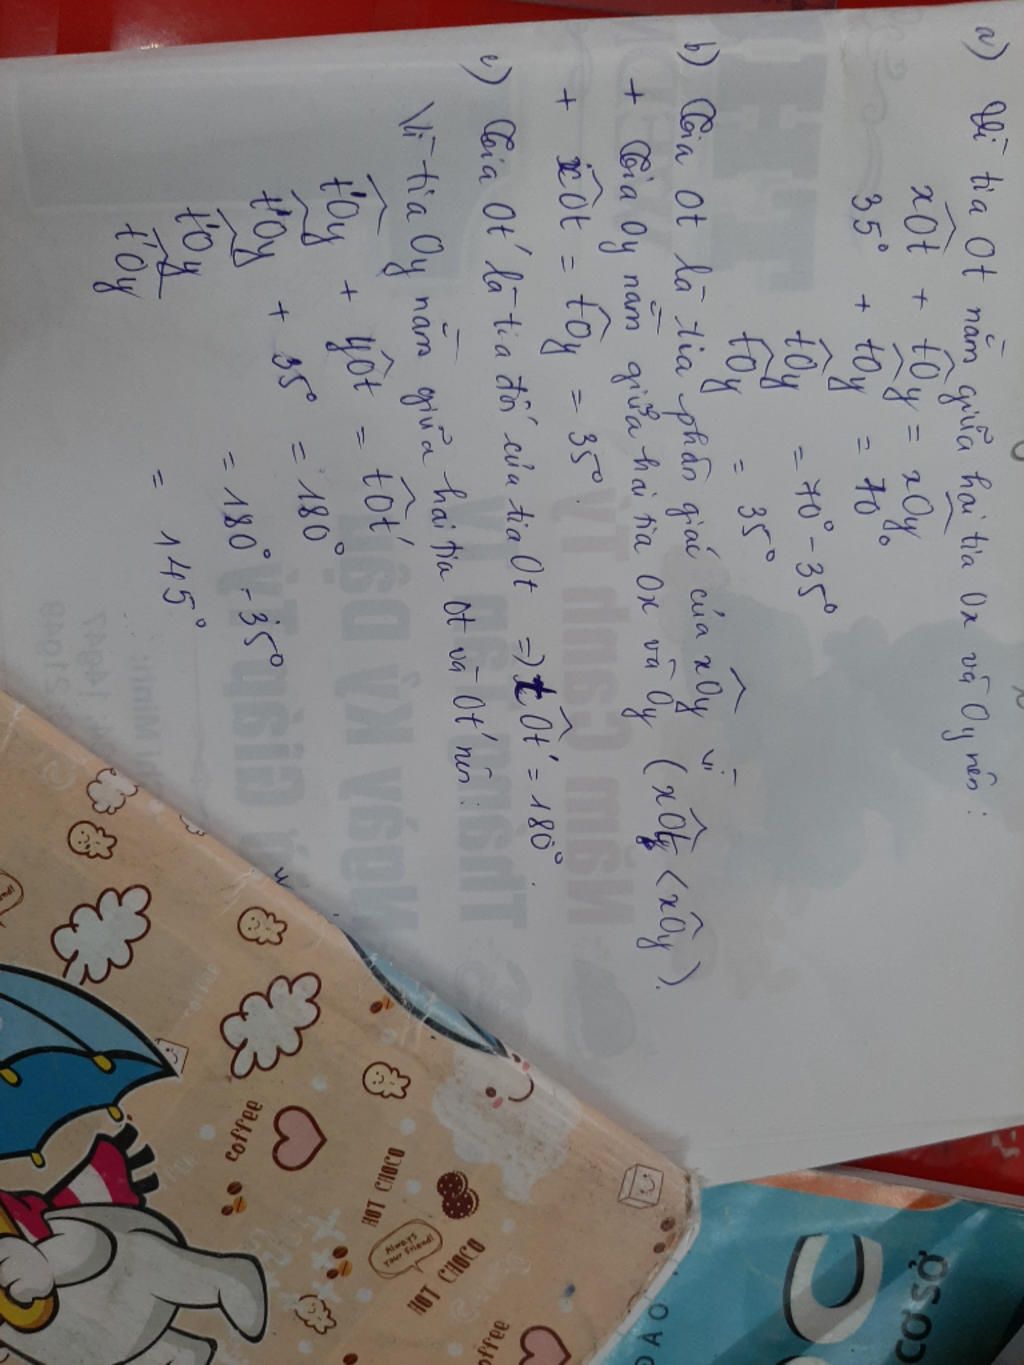 a) Vì tia Ot nằm giữa hai tia Ox và Oy nên:
xOt + tOy = xOy
35° + tOy = 70°
tOy = 70° - 35°
tOy = 35°
b) Tia Ot là tia phân giác của xOy vì
+ Tia Oy nằm giữa hai tia Ox và Oy (xOy < xOy).
+ xOt = tOy = 35°.
c) Tia Ot' là tia đối của tia Ot => tOt' = 180°.
Vì tia Oy nằm giữa hai tia Ot và Ot' nên:
t'Oy + yOt = tOt'
t'Oy + 35° = 180°
t'Oy = 180° - 35°
t'Oy = 145°
Năm Canh Tý
Ngày Kỷ Dậu
Giáp Tý
14947
21949
coffee
HOT CHOCO
Always Your Friend!
HOT CHOCO
coffee
CƠ SỞ